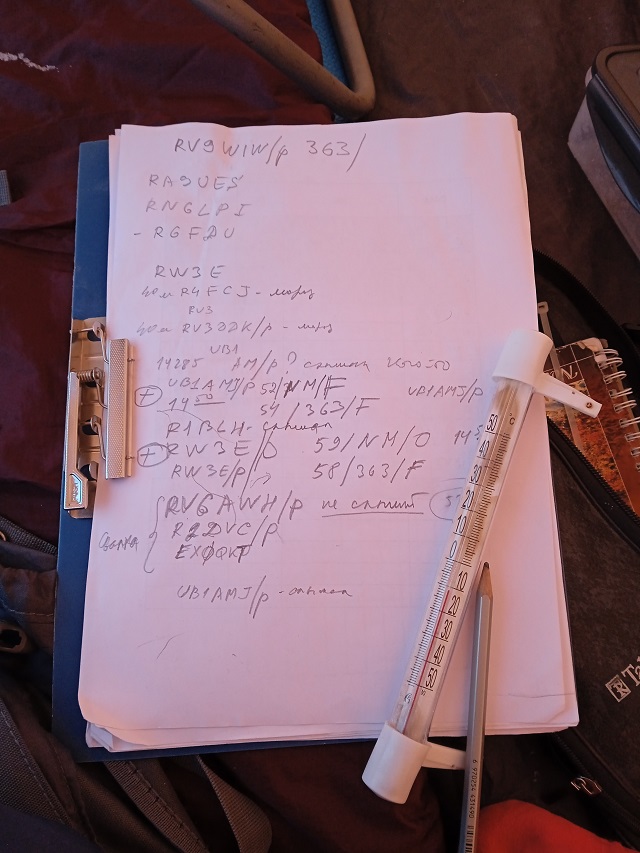 RV9WIW/p 363/
RA9UES
RN6LPI
- RGFDU
RW3E
40м R4FCJ - морз
RV3
40м RV3DDK/p - морз
UB1
14285 AM/p?
UB1AMJ/p 52/NM/F UB1AMJ/p
14 50 54/363/F
R1BLH - слышал
+ RW3E/p 59/NM/O 145
RW3E/p 58/363/F
RV6AWH/p не слышит
R2DVC/p
EXØQKT
UB1AMJ/p - слышал
50 40 30 20 10 0 10 20 30 40 50